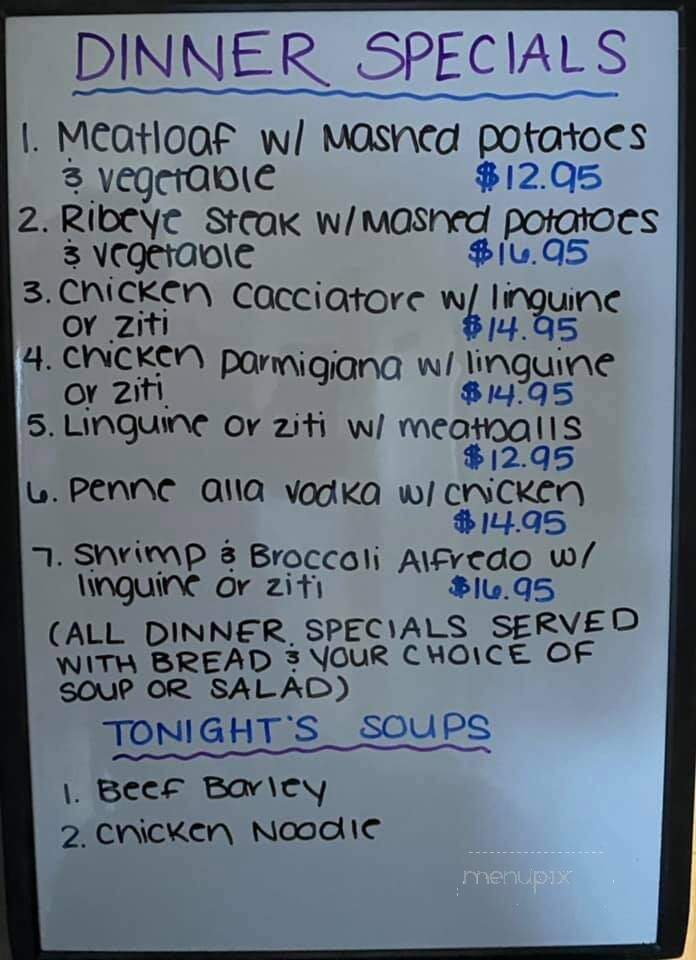 DINNER SPECIALS
1. Meatloaf w/ Mashed potatoes
& vegetable $12.95
2. Ribeye steak w/ Mashed potatoes
& vegetable $16.95
3. Chicken cacciatore w/ linguine
or ziti $14.95
4. Chicken parmigiana w/ linguine
or ziti $14.95
5. Linguine or ziti w/ meatballs
$12.95
6. Penne alla vodka w/ chicken
$14.95
7. Shrimp & Broccoli Alfredo w/
linguine or ziti $16.95
(ALL DINNER SPECIALS SERVED
WITH BREAD & YOUR CHOICE OF
SOUP OR SALAD)
TONIGHT'S SOUPS
1. Beef Barley
2. Chicken Noodle
menupix